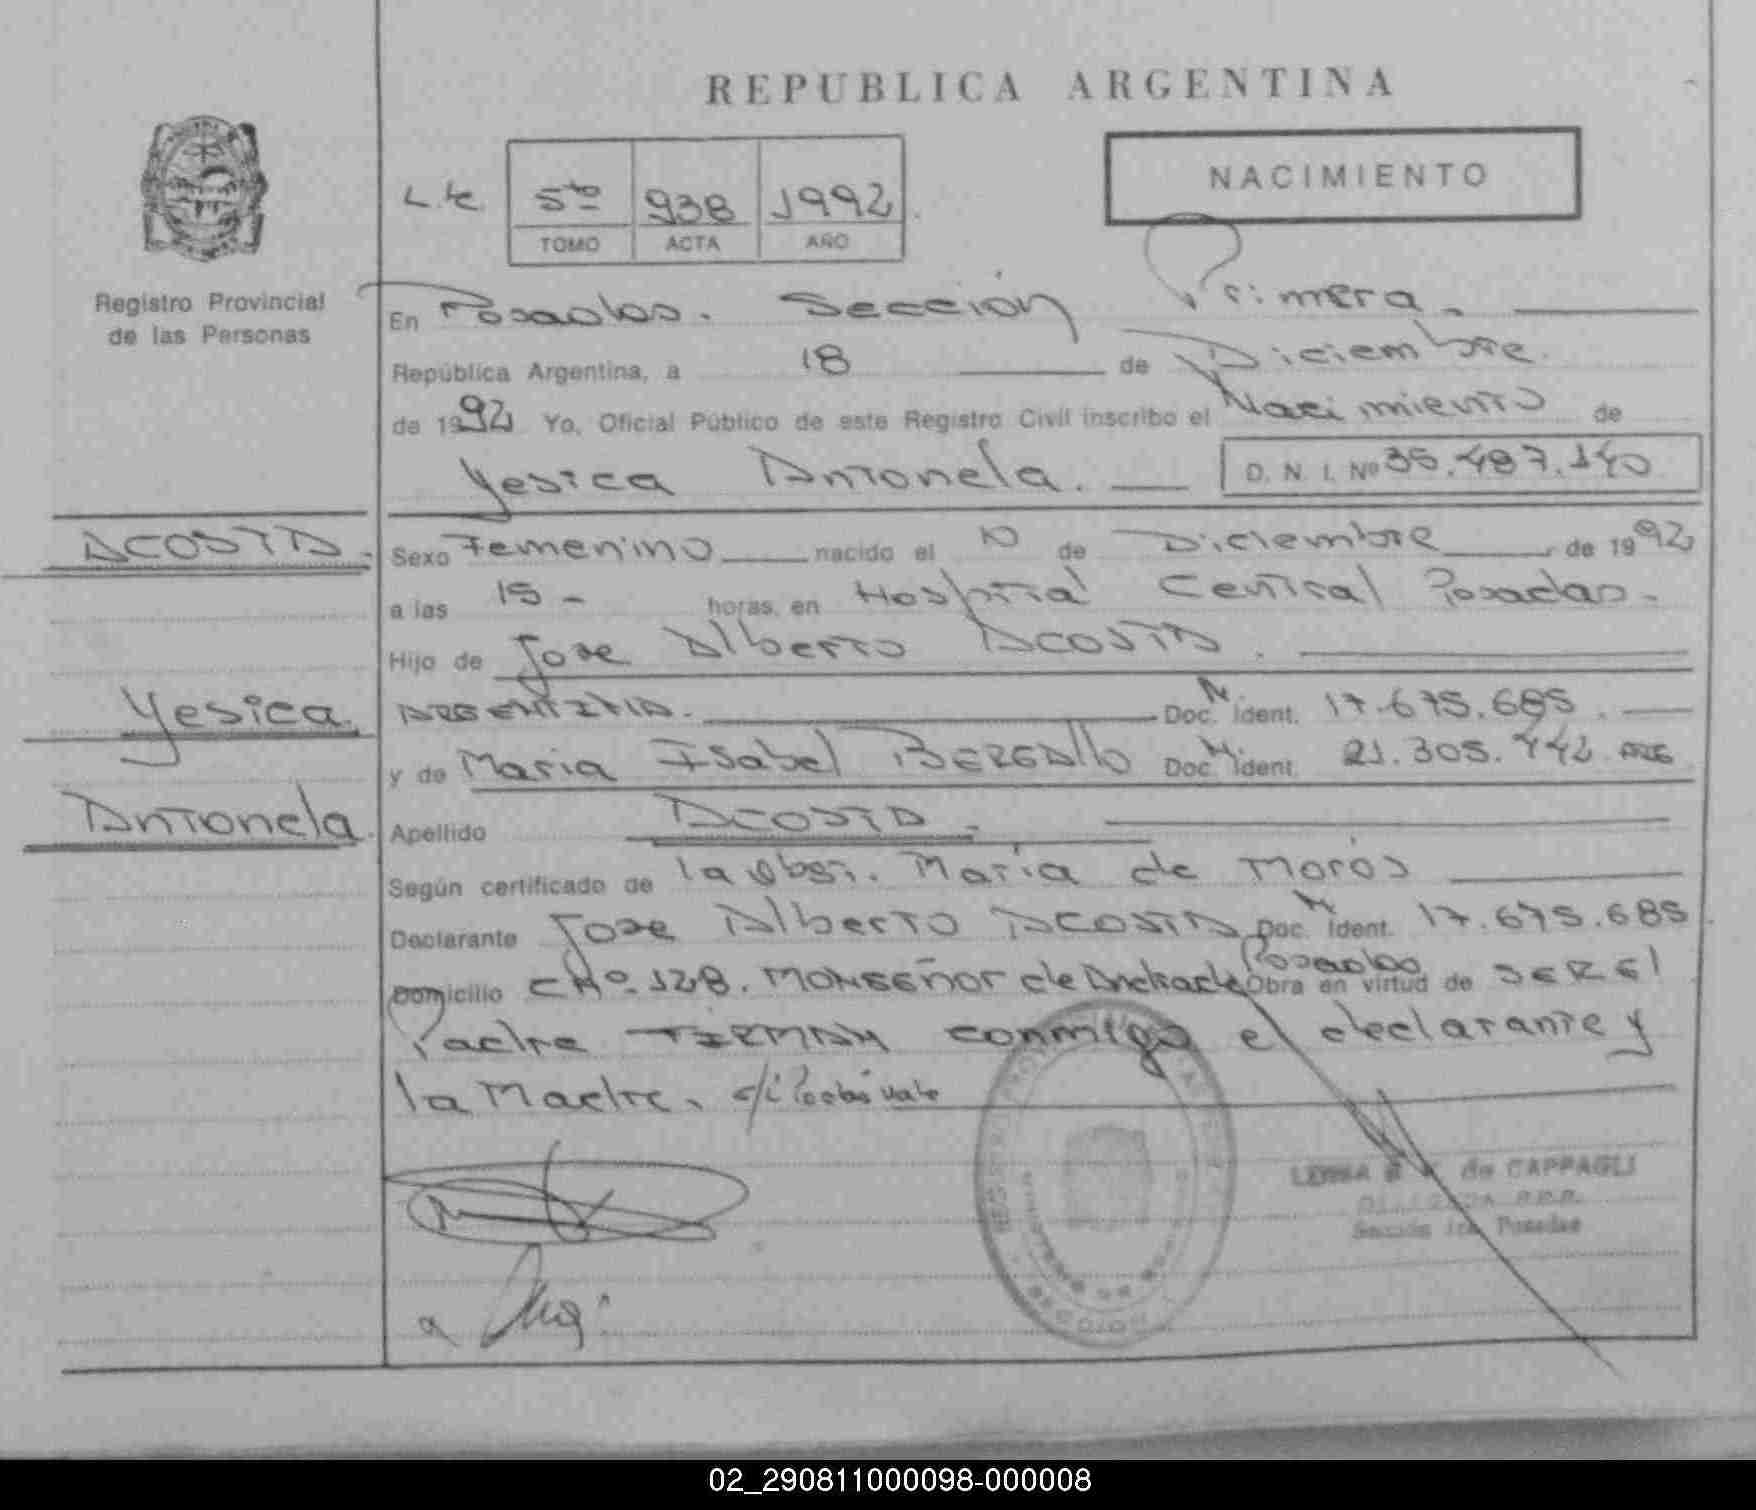 REPUBLICA ARGENTINA
NACIMIENTO
5to 938 1992
TOMO ACTA AÑO
Registro Provincial
de las Personas
En Posadas. Sección Primera.
República Argentina, a 18 de Diciembre
de 1992 Yo, Oficial Público de este Registro Civil inscribo el Nacimiento de
Yesica Antonela. D. N. I. Nº 35.487.140
ACOSTA. Sexo Femenino nacido el 10 de Diciembre de 1992
a las 15 - horas, en Hospital Central Posadas.
Hijo de Jose Alberto ACOSTA.
Yesica ARGENTINA. Doc. Ident. 17.675.685.
y de Maria Isabel Doc. Ident. 21.305.442 ARG
Antonela. Apellido ACOSTA.
Según certificado de la Obst. Maria de Morós
Declarante Jose Alberto ACOSTA Doc. Ident. 17.675.685
Domicilio CH Nº 128. MONSEÑOR de Andrade Posadas Obra en virtud de SER El
Padre FIRMAN conmigo el declarante y
la Madre. Vale
de CAPPAGLI
Sección 1ra. Posadas
02_290811000098-000008